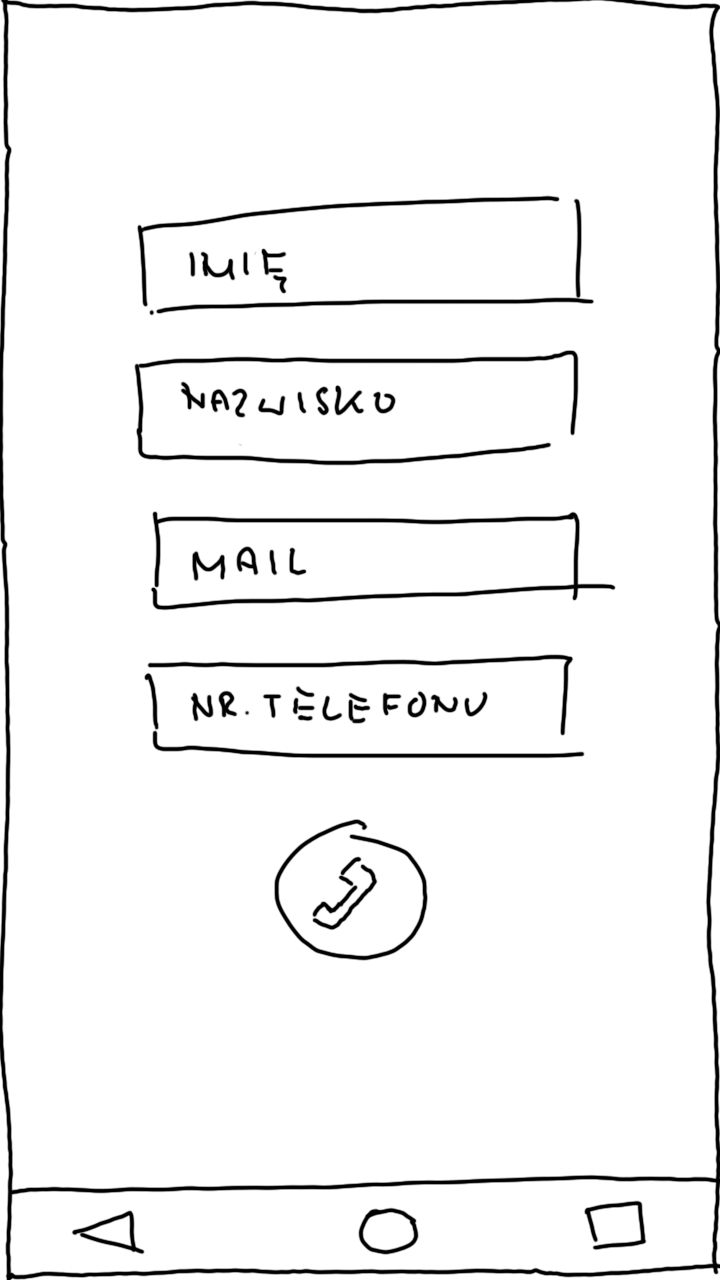 IMIĘ
NAZWISKO
MAIL
NR. TELEFONU